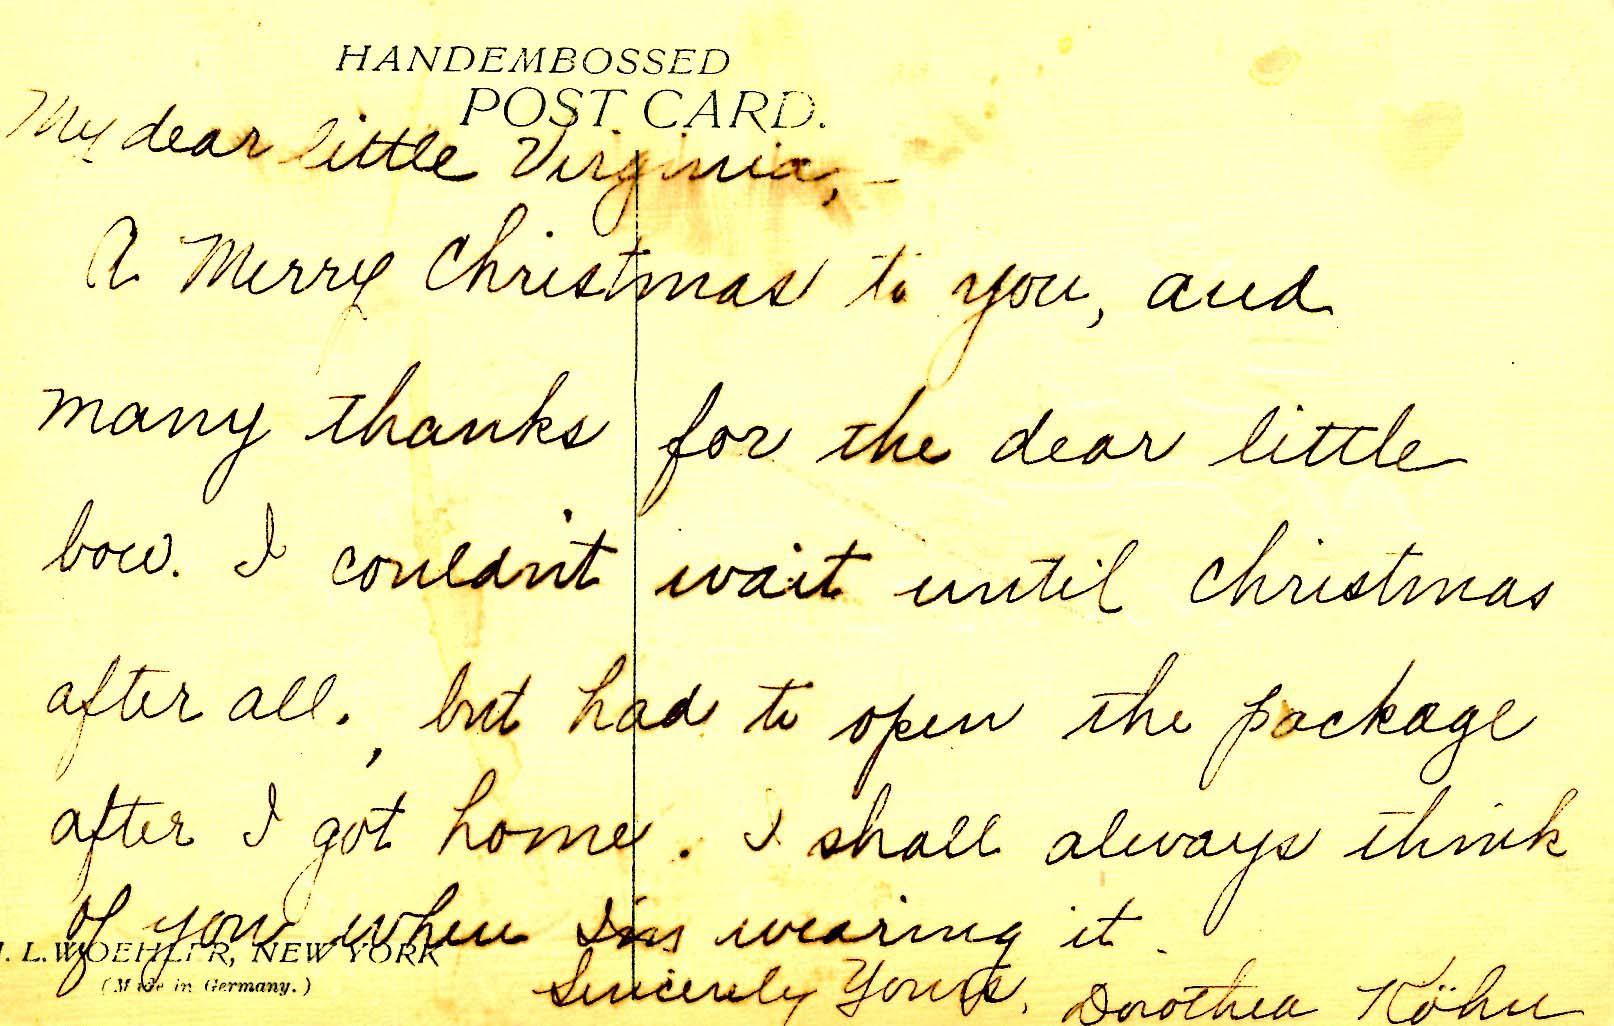 HANDEMBOSSED
POST CARD.
My dear little Virginia, –
A Merry Christmas to you, and
many thanks for the dear little
bow. I couldn't wait until Christmas
after all., but had to open the package
after I got home. I shall always think
of you when I'm wearing it.
Sincerely Yours, Dorothea Köhn
. L. WOEHLER, NEW YORK
(Made in Germany.)